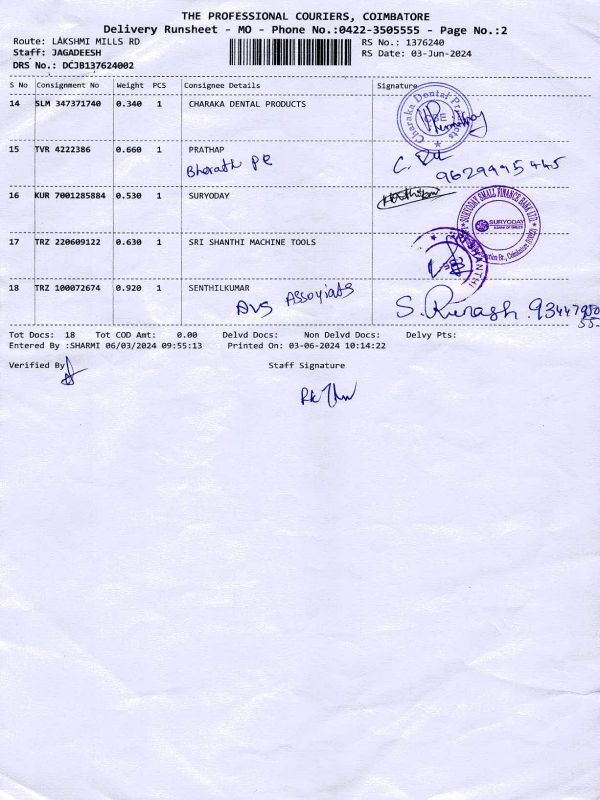 THE PROFESSIONAL COURIERS, COIMBATORE
Delivery Runsheet - MO - Phone No.:0422-3505555 - Page No.:2
Route: LAKSHMI MILLS RD RS No.: 1376240
Staff: JAGADEESH RS Date: 03-Jun-2024
DRS No.: DCJB137624002
S No Consignment No Weight PCS Consignee Details Signature
14 SLM 347371740 0.340 1 CHARAKA DENTAL PRODUCTS
Charaka Dental Products
15 TVR 4222386 0.660 1 PRATHAP
Bharath PE
9629995445
16 KUR 7001285884 0.530 1 SURYODAY
SURYODAY SMALL FINANCE BANK LTD.
SURYODAY
17 TRZ 220609122 0.630 1 SRI SHANTHI MACHINE TOOLS
18 TRZ 100072674 0.920 1 SENTHILKUMAR
AVS Assoyiats
Tot Docs: 18 Tot COD Amt: 0.00 Delvd Docs: Non Delvd Docs: Delvy Pts:
Entered By :SHARMI 06/03/2024 09:55:13 Printed On: 03-06-2024 10:14:22
Verified By Staff Signature